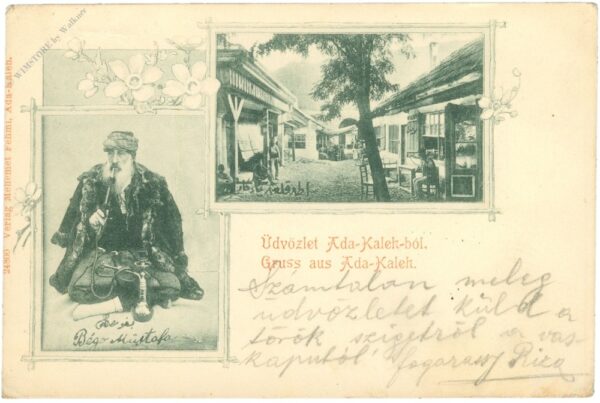 WIMSTORE by Walkner
24800 Verlag Mehemet Fehmi, Ada-Kaleh.
Üdvözlet Ada-Kaleh-ból.
Gruss aus Ada-Kaleh.
Bégo Mustafa
Számtalan meleg
üdvözletet küld a
török szigetről a vas
kaputól fogarassy Riza